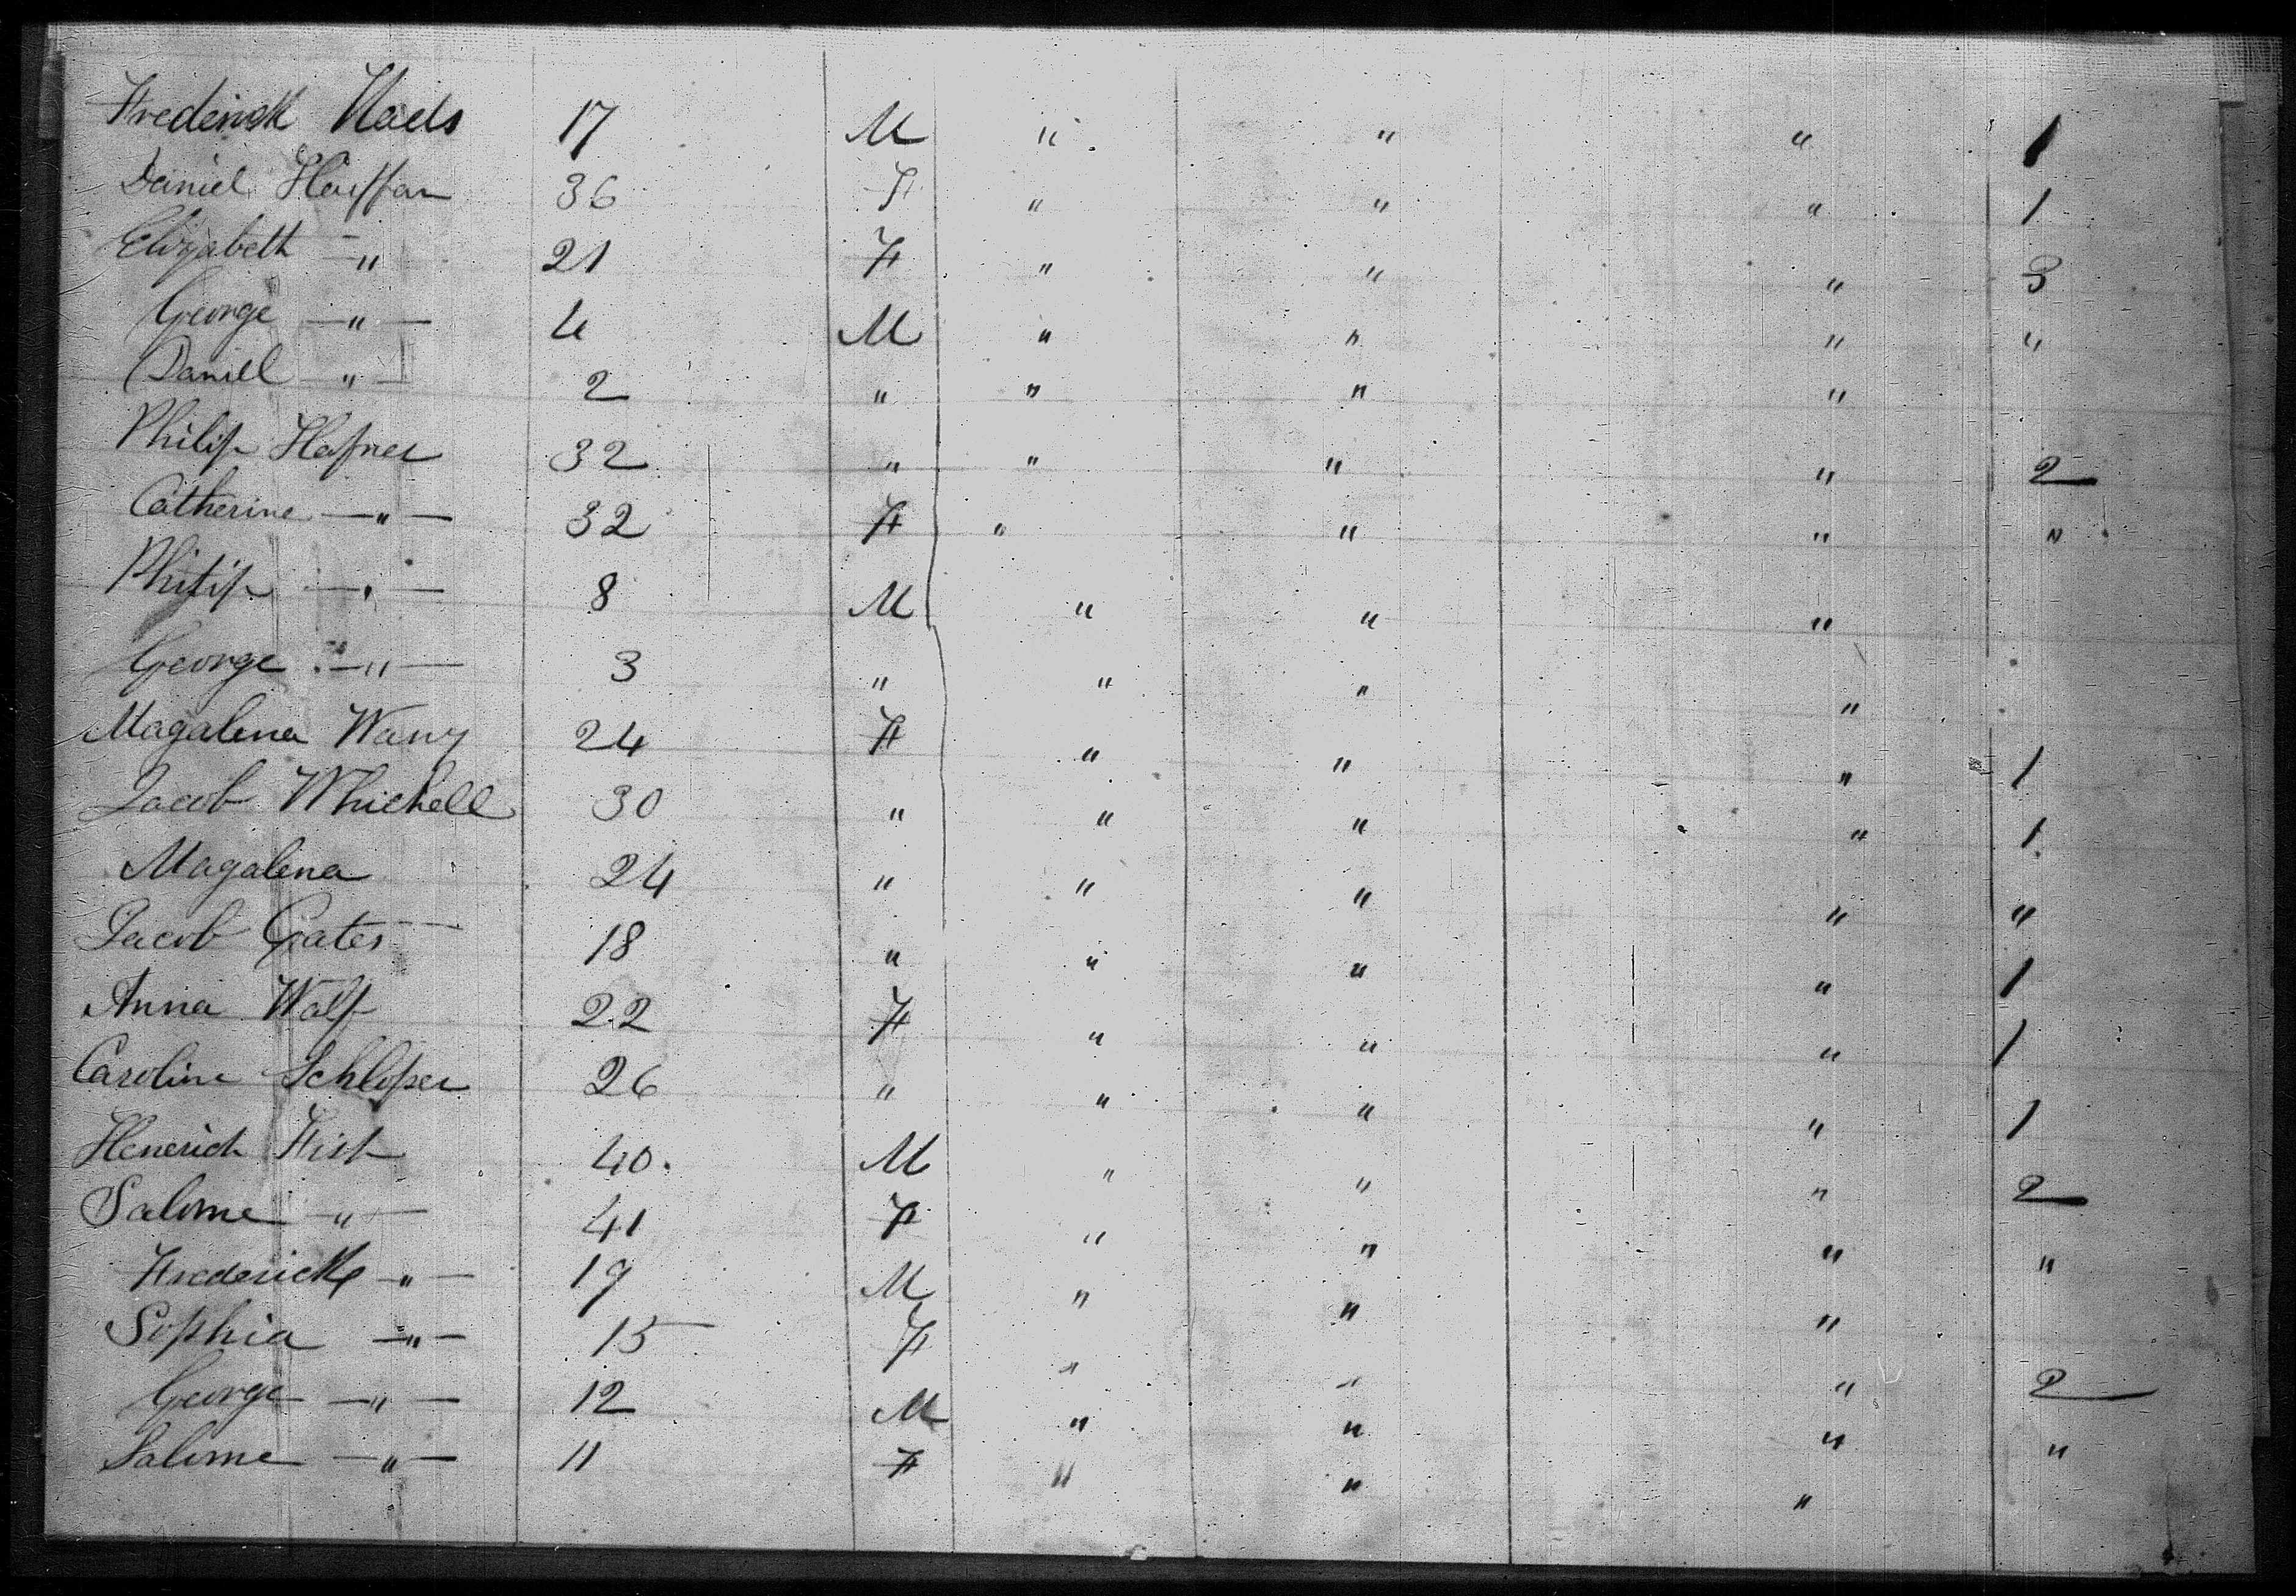 Frederick Naels 17 M " " " 1
Daniel Hauffan 36 F " " " 1
Elizabeth — " 21 F " " " 3
George — " — 4 M " " " "
Daniel — " — 2 " " " "
Philip Hafner 32 " " " " 2
Catherine — " — 32 F " " " "
Philip — " — 8 M " " "
George — " — 3 " " " "
Magalena Wany 24 F " " " 1
Jacob Whichell 30 " " " " 1
Magalena 24 " " " " "
Jacob Gates 18 " " " " 1
Anna Walf 22 F " " " 1
Caroline Schloser 26 " " " " 1
Henerich Fish 40 M " " " 2
Salome — " — 41 F " " " "
Frederick — " — 19 M " " "
Sophia — " — 15 F " " " 2
George — " — 12 M " " " "
Salome — " — 11 F " " "